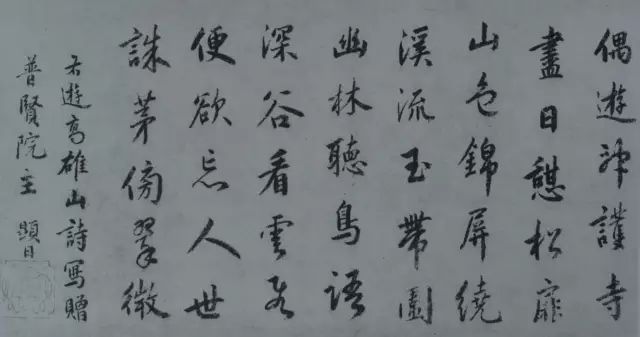 偶遊神護寺
盡日憇松扉
山色錦屏繞
溪流玉帶圍
幽林聽鳥語
深谷看雲飛
便欲忘人世
誅茅傍翠微
右遊高雄山詩寫贈
普賢院主 顕日